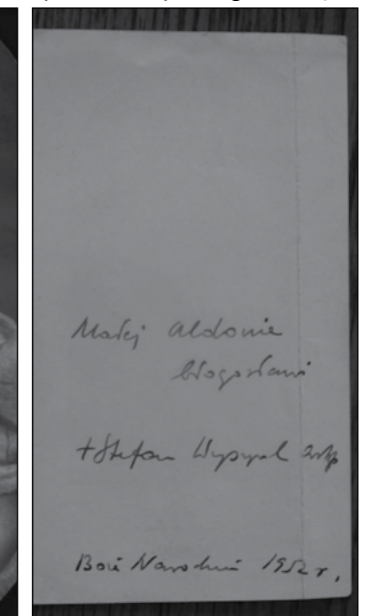 Małej Aldonie
błogosławi
+ Stefan Wyszyński arbp
Boże Narodzenie 1952 r.